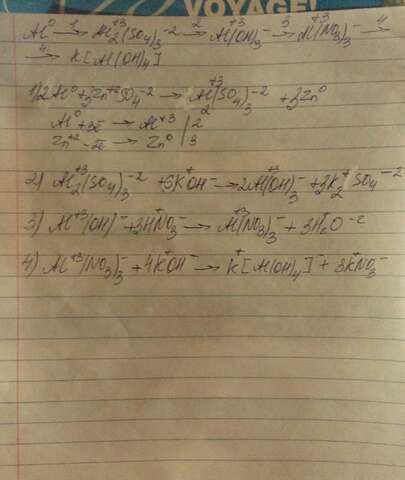 VOYAGE!
Al⁰ —1→ Al₂⁺³(SO₄)₃⁻² —2→ Al⁺³(OH)₃⁻ —3→ Al⁺³(NO₃)₃⁻ —4→
—4→ K[Al(OH)₄]
1) 2Al⁰+3Zn⁺²SO₄⁻² → Al₂⁺³(SO₄)₃⁻² + 3Zn⁰
Al⁰ +3ē → Al⁺³ | 2
Zn⁺² -2ē → Zn⁰ | 3
2) Al₂⁺³(SO₄)₃⁻² +6K⁺OH⁻ → 2Al⁺³(OH)₃⁻ + 3K₂⁺SO₄⁻²
3) Al⁺³(OH)⁻ +3H⁺NO₃⁻ → Al⁺³(NO₃)₃⁻ + 3H₂⁺O⁻²
4) Al⁺³(NO₃)₃⁻ +4K⁺OH⁻ → K⁺[Al(OH)₄]⁻ + 3K⁺NO₃⁻